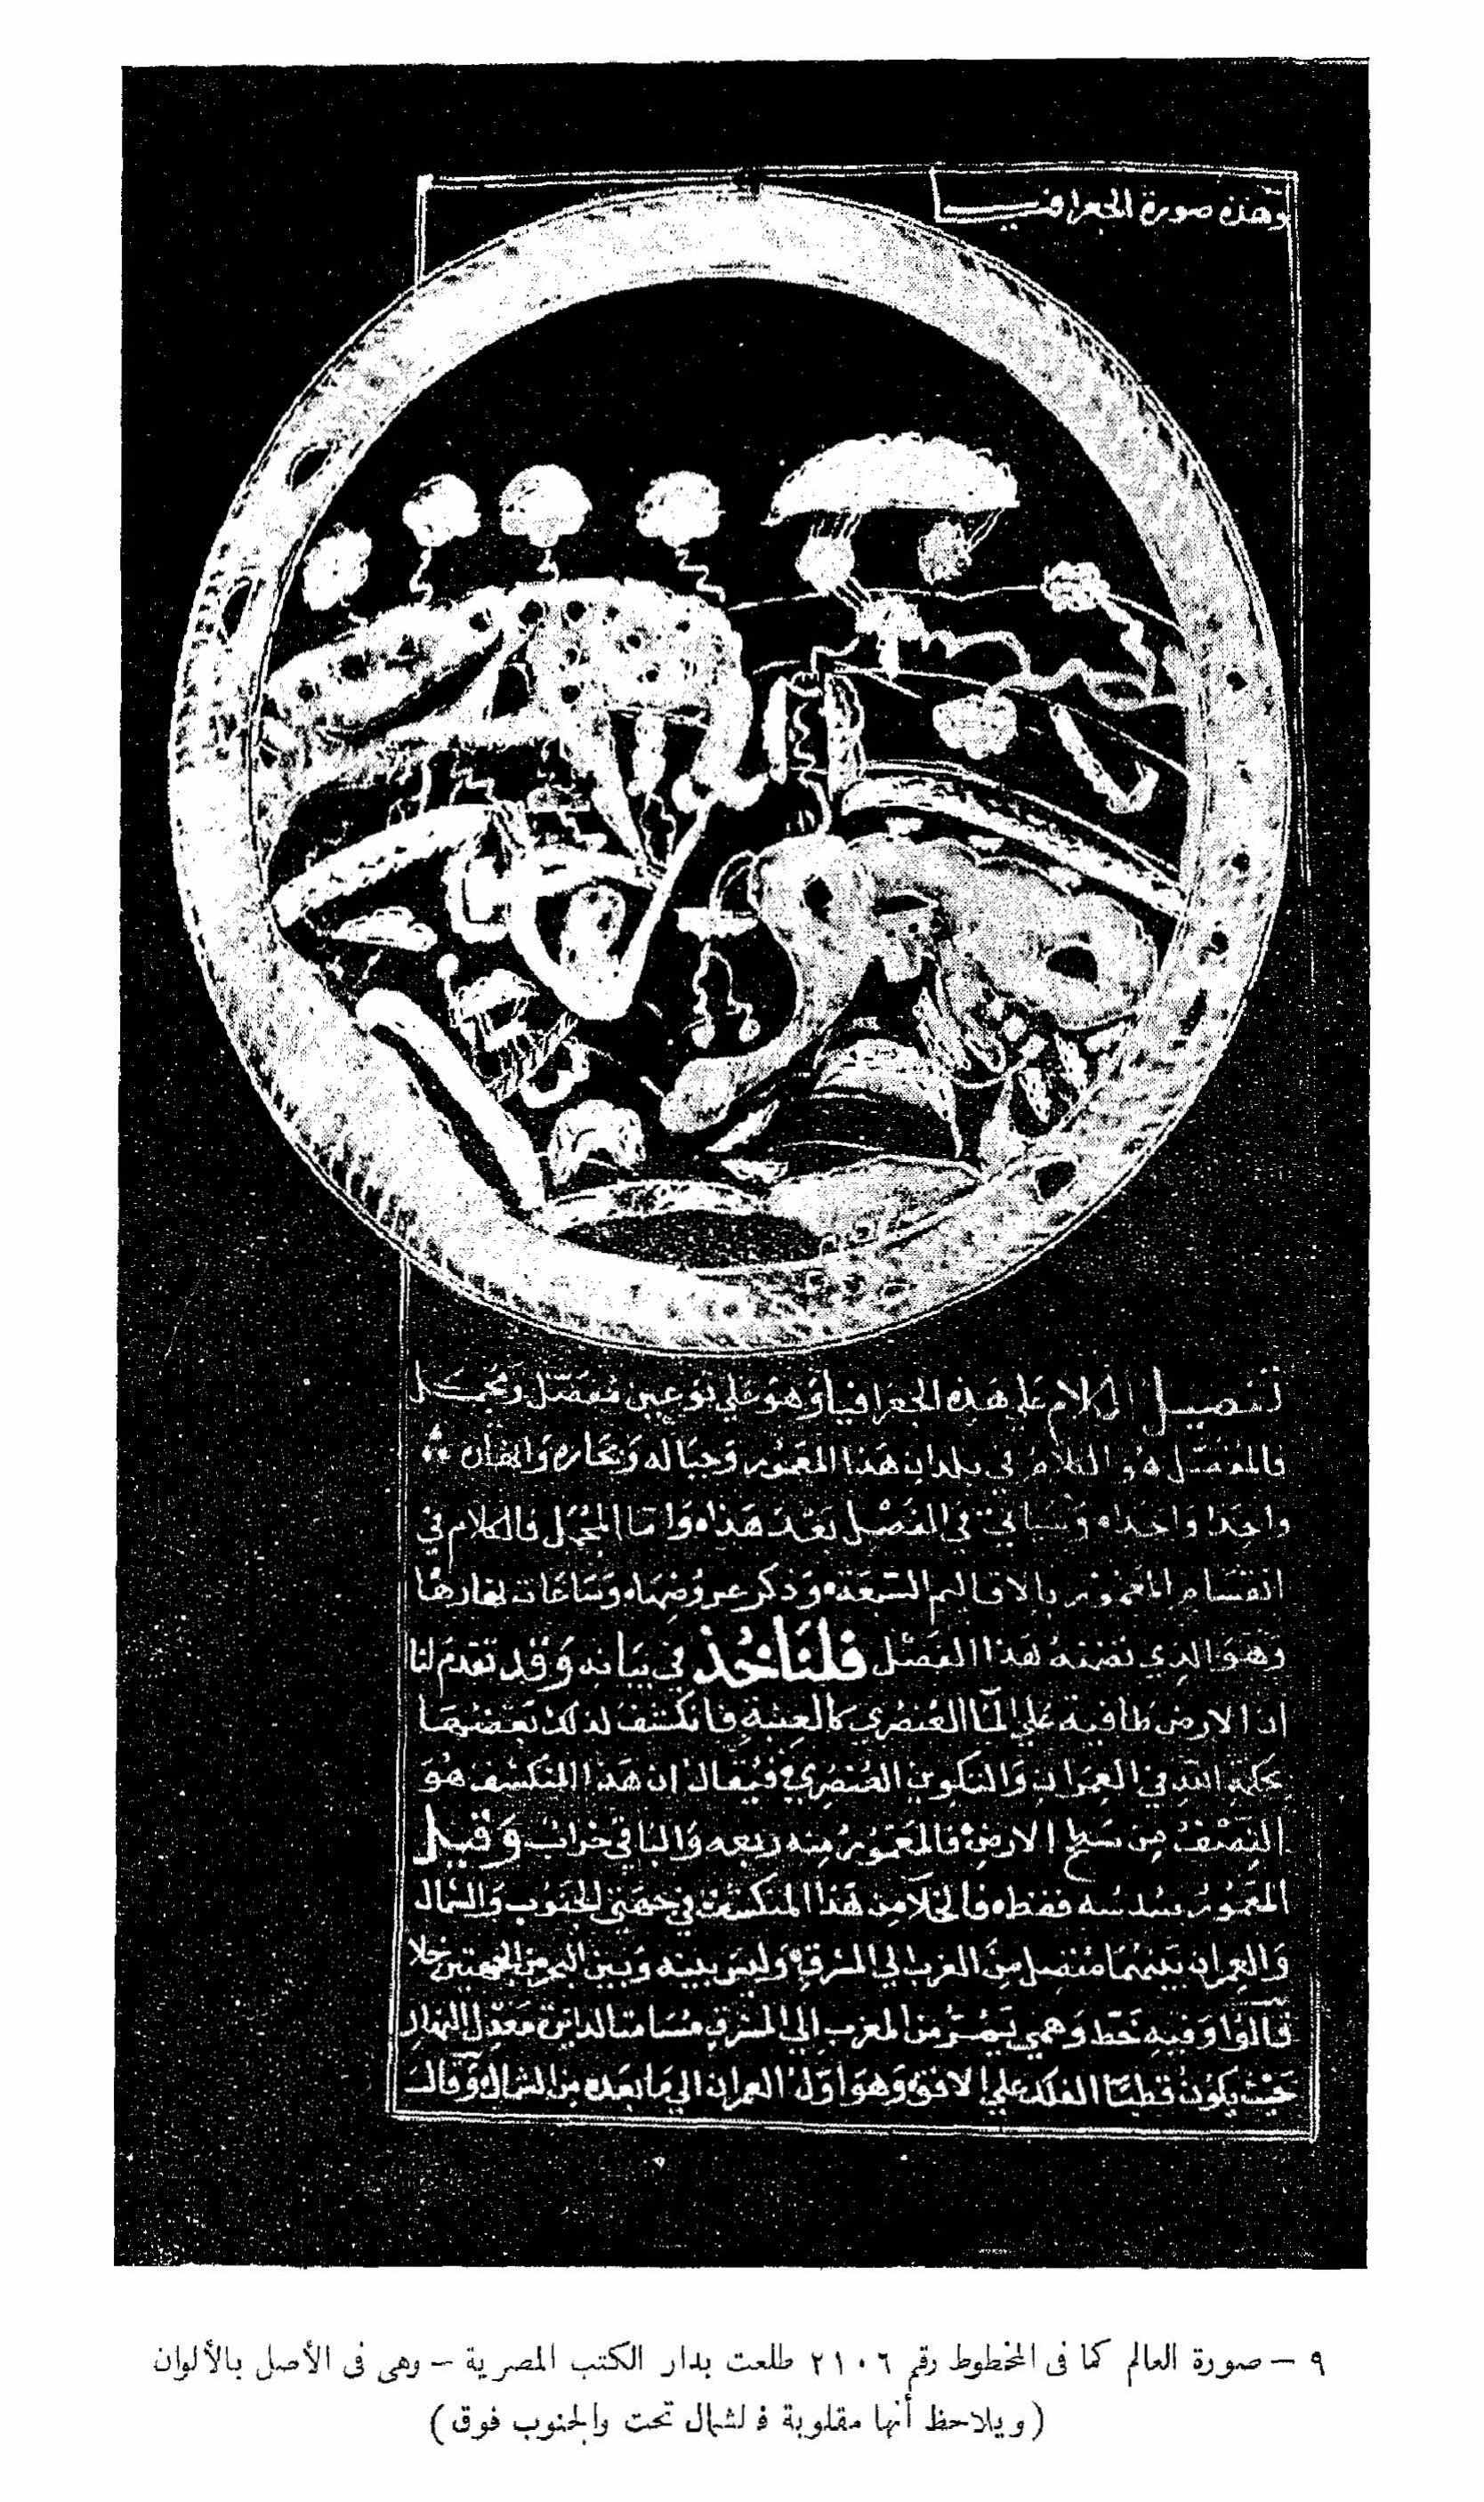 وهذه صورة الجغرافيـــــا
تفصيل الكلام على هذه الجغرافيا وهو على نوعين مفصّل ومجمل
فالمفصّل هو الكلام في بلدان هذا المعمور وجباله وبحاره وانهاره
واحدا واحدا وسياتي في الفصل بعد هذا واما المجمل فالكلام في
انقسام المعمور بالاقاليم السبعة وذكر عروضها وساعات نهارها
وهو الذي تضمنه هذا الفصل فلناخذ في بيانه وقد تقدم لنا
ان الارض طافية على الما العنصري كالعنبة فانكشف لذلك بعضها
بحكمة الله في العمران والتكوين العنصري فيقال ان هذا المنكشف هو
النصف من سطح الارض فالمعمور منه ربعه والباقي خراب وقيل
المعمور سدسه فقط فالخلا من هذا المنكشف في جهتي الجنوب والشمال
والعمران بينهما متصل من الغرب الي المشرق وليس بينه وبين البحر من الجهتين خلا
قالوا وفيه خط وهمي يمر من المغرب الي المشرق مسامتا لدائرة معدل النهار
حيث يكون قطبا الفلك علي الافق وهو اول العمران الي ما بعده من الشمال وقال
٩ – صورة العالم كما فى المخطوط رقم ٢١٠٦ طلعت بدار الكتب المصرية – وهى فى الأصل بالألوان
( ويلاحظ أنها مقلوبة فالشمال تحت والجنوب فوق )